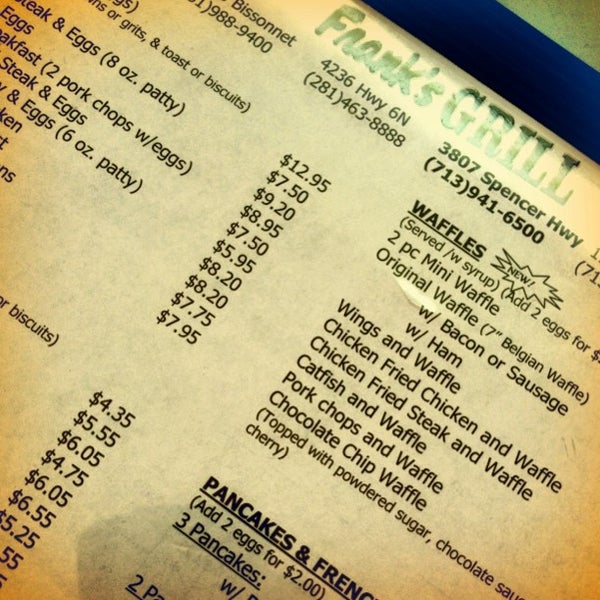 Frank's GRILL
Bissonnet
988-9400
4236 Hwy 6N
(281)463-8888
3807 Spencer Hwy
(713)941-6500
ns or grits, & toast or biscuits)
Steak & Eggs (8 oz. patty)
Eggs
(2 pork chops w/eggs)
Steak & Eggs
& Eggs (6 oz. patty)
or biscuits)
$12.95
$7.50
$9.20
$8.95
$7.50
$5.95
$8.20
$8.20
$7.75
$7.95
$4.35
$5.55
$6.05
$4.75
$6.05
$6.55
$5.25
.55
WAFFLES
(Served /w syrup) (Add 2 eggs for $
2 pc Mini Waffle NEW!
Original Waffle (7" Belgian Waffle)
w/ Bacon or Sausage
w/ Ham
Wings and Waffle
Chicken Fried Chicken and Waffle
Chicken Fried Steak and Waffle
Catfish and Waffle
Pork chops and Waffle
Chocolate Chip Waffle
(Topped with powdered sugar, chocolate sauc
cherry)
PANCAKES & FRENC
(Add 2 eggs for $2.00)
3 Pancakes:
w/
2 Pa